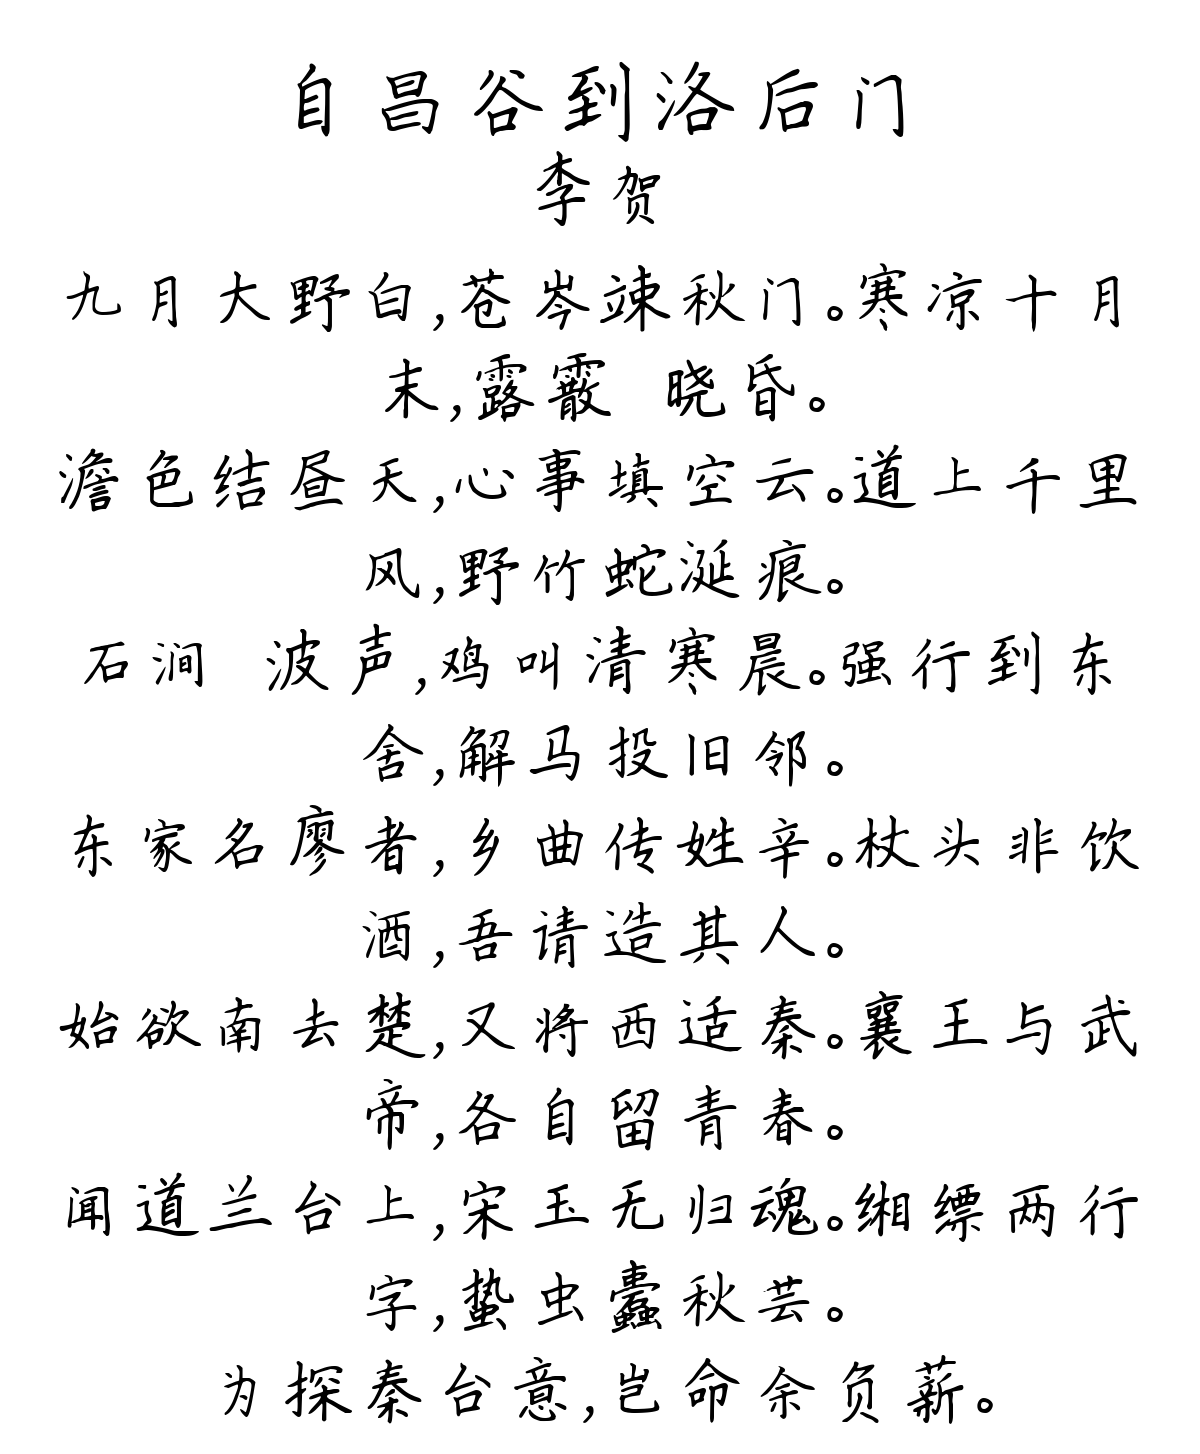 自昌谷到洛后门
李贺
九月大野白,苍岑竦秋门。寒凉十月
末,露霰 晓昏。
澹色结昼天,心事填空云。道上千里
风,野竹蛇涎痕。
石涧 波声,鸡叫清寒晨。强行到东
舍,解马投旧邻。
东家名廖者,乡曲传姓辛。杖头非饮
酒,吾请造其人。
始欲南去楚,又将西适秦。襄王与武
帝,各自留青春。
闻道兰台上,宋玉无归魂。缃缥两行
字,蛰虫蠹秋芸。
为探秦台意,岂命余负薪。